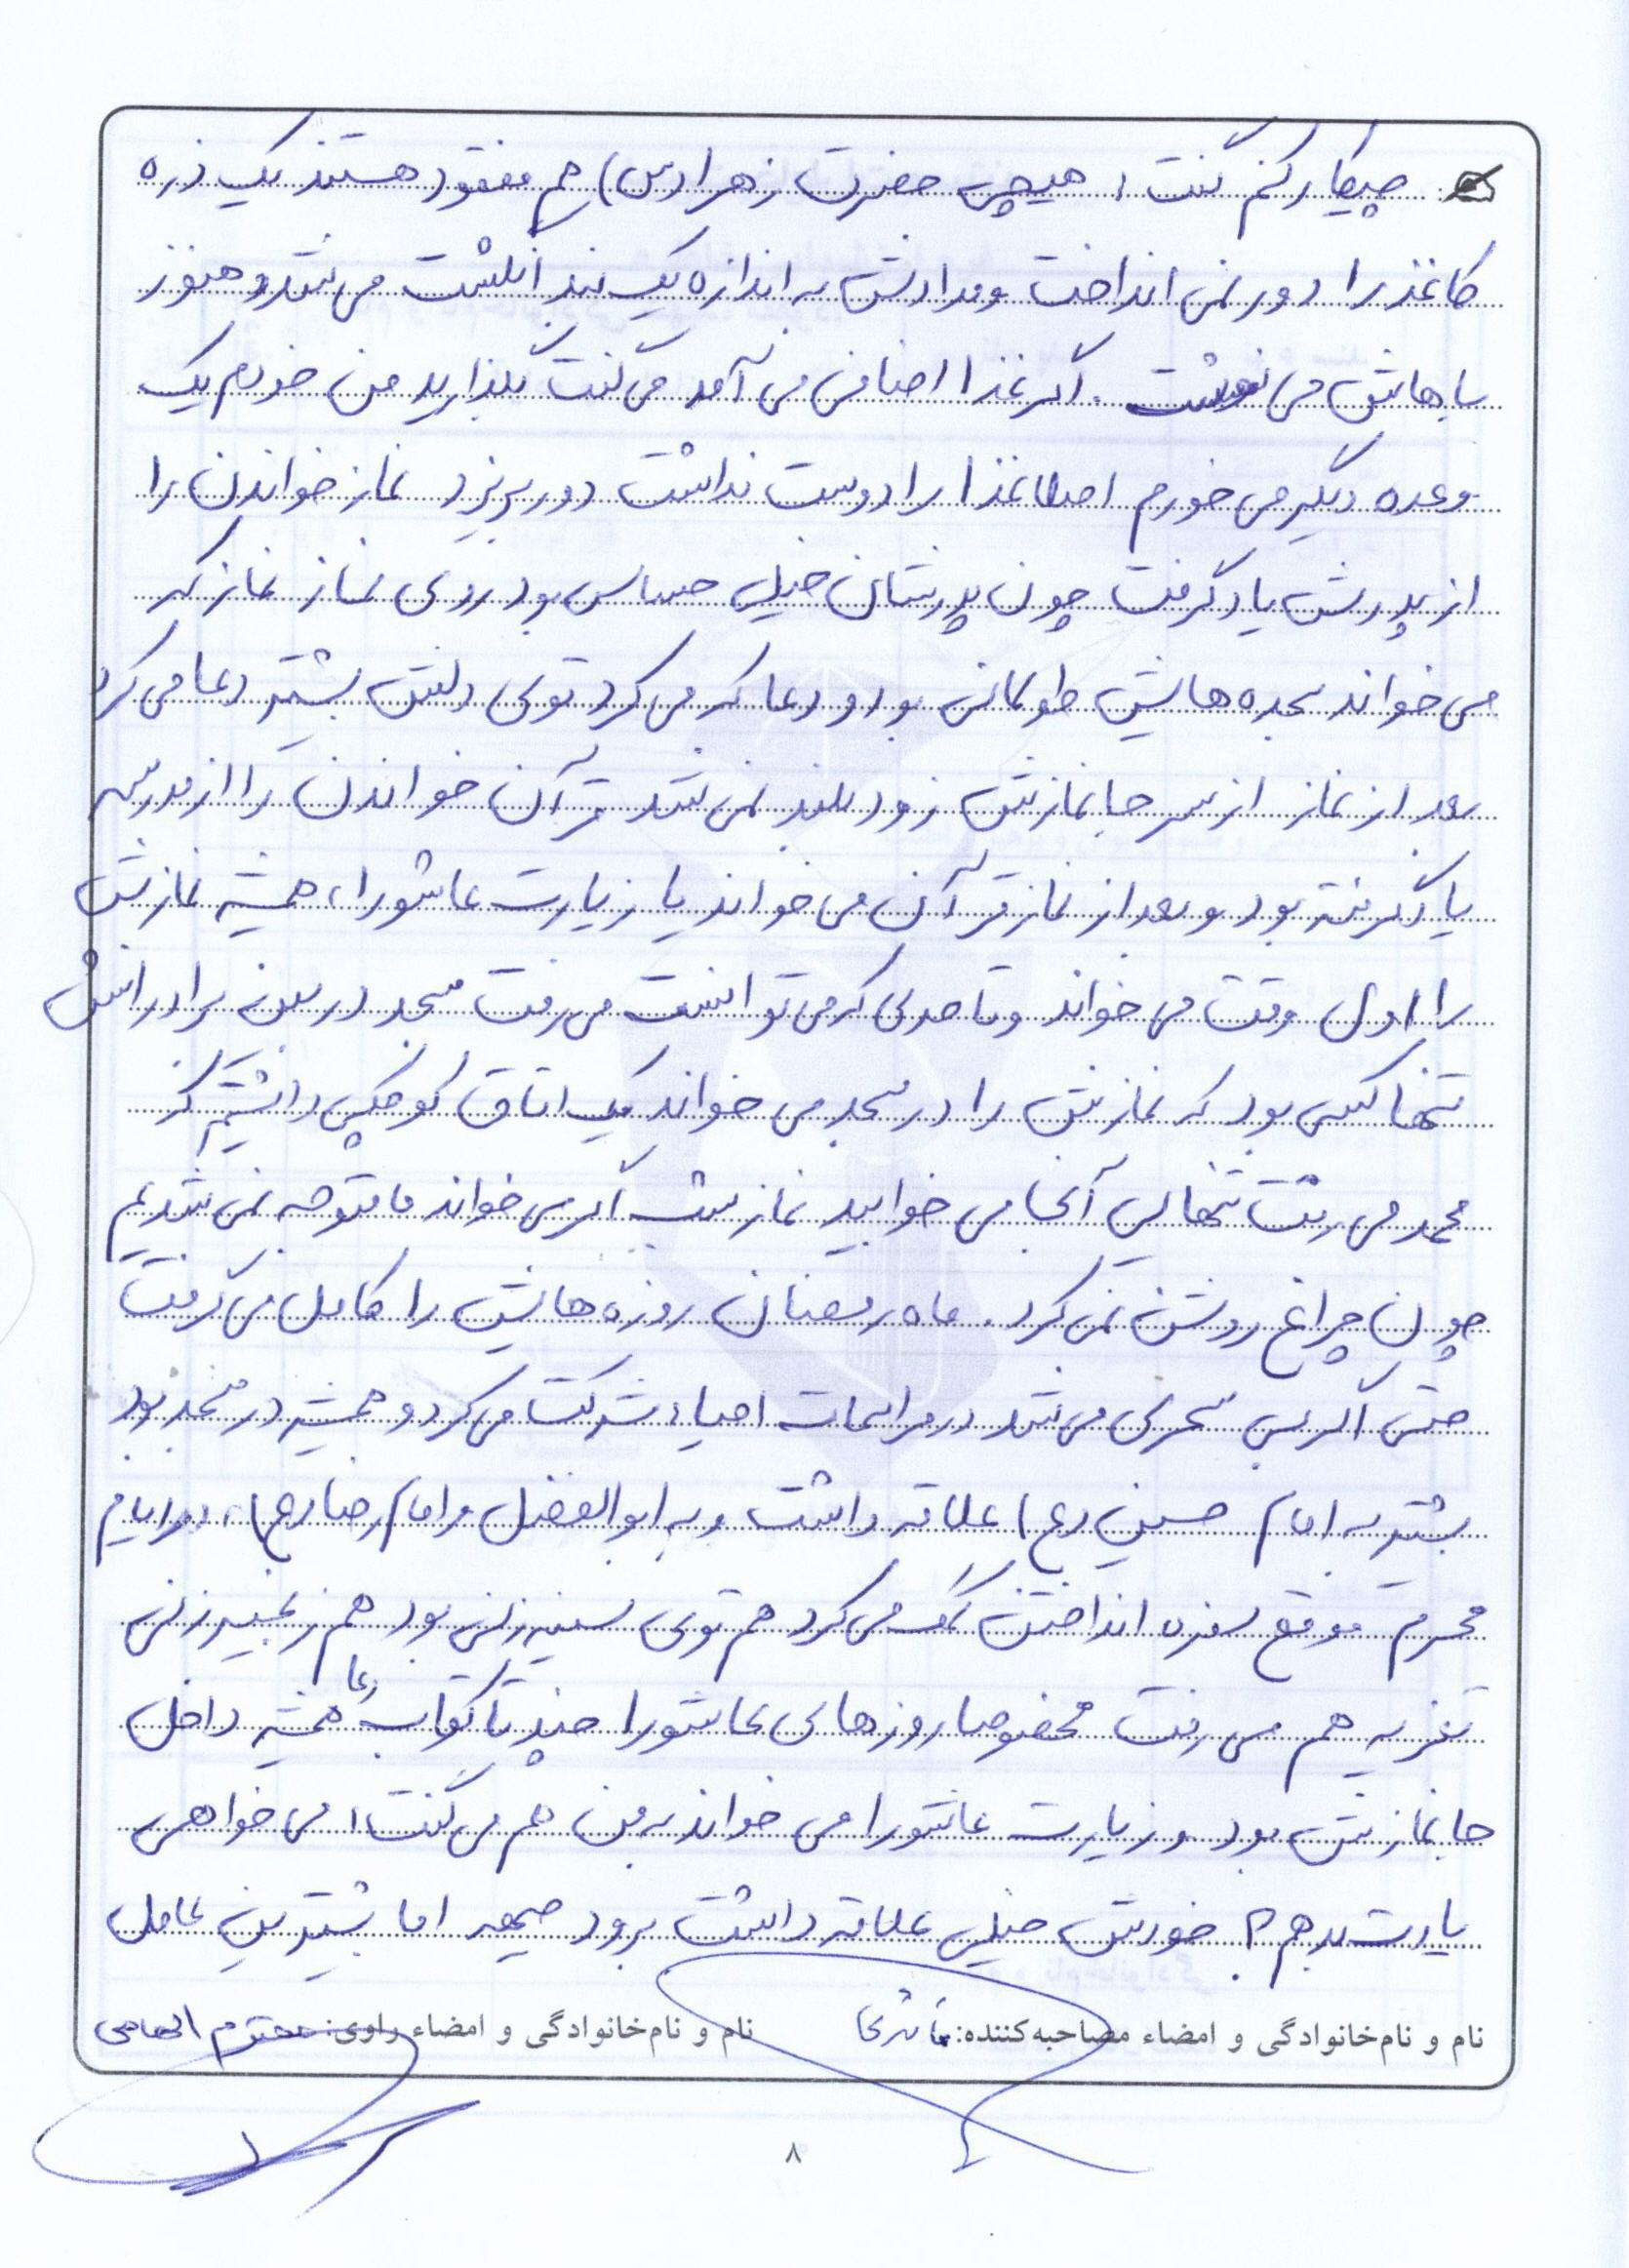 چیکار کنم گفت: هیچی حضرت زهرا (س) هم مفقود هستند یک ذره
کاغذ را دور نمی انداخت و مدادش به اندازه یک بند انگشت می شد و هنوز
باهاش می نوشت. اگر غذا اضافی می آمد می گفت بگذارید من خودم یک
وعده دیگر می خورم اصلا غذا را دوست نداشت دور بریزد نماز خواندن را
از پدرش یاد گرفت چون پدرشان خیلی حساس بود روی نماز نماز که
می خواند سجده هایش طولانی بود و دعا که می کرد توی دلش بیشتر دعا می کرد
بعد از نماز از سر جا نمازش زود بلند نمی شد قرآن خواندن را از مدرسه
یاد گرفته بود و بعد از نماز قرآن می خواند یا زیارت عاشورا، همیشه نمازش
را اول وقت می خواند و تا حدی که می توانست می رفت مسجد در بین برادرانش
تنها کسی بود که نمازش را در مسجد می خواند یک اتاق کوچکی داشتیم که
محمد می رفت تنهایی آنجا می خوابید نماز شب اگر می خواند ما متوجه نمی شدیم
چون چراغ روشن نمی کرد. ماه رمضان روزه هایش را کامل می گرفت
حتی اگر بی سحری می شد در مراسمات احیاء شرکت می کرد و همیشه در مسجد بود
بیشتر به امام حسین (ع) علاقه داشت و به ابوالفضل و امام رضا (ع)، در ایام
محرم موقع سفره انداختن کمک می کرد هم توی سینه زنی بود هم زنجیر زنی
تعزیه هم می رفت مخصوصا روزهای عاشورا چند تا کتاب دعا همیشه داخل
جا نمازش بود و زیارت عاشورا می خواند به من هم می گفت: می خواهی
یادت بدهم؟ خودش خیلی علاقه داشت برود جبهه اما بیشترین عامل
نام و نام‌خانوادگی و امضاء مصاحبه‌کننده: نام و نام‌خانوادگی و امضاء راوی: محترم الهامی
۸